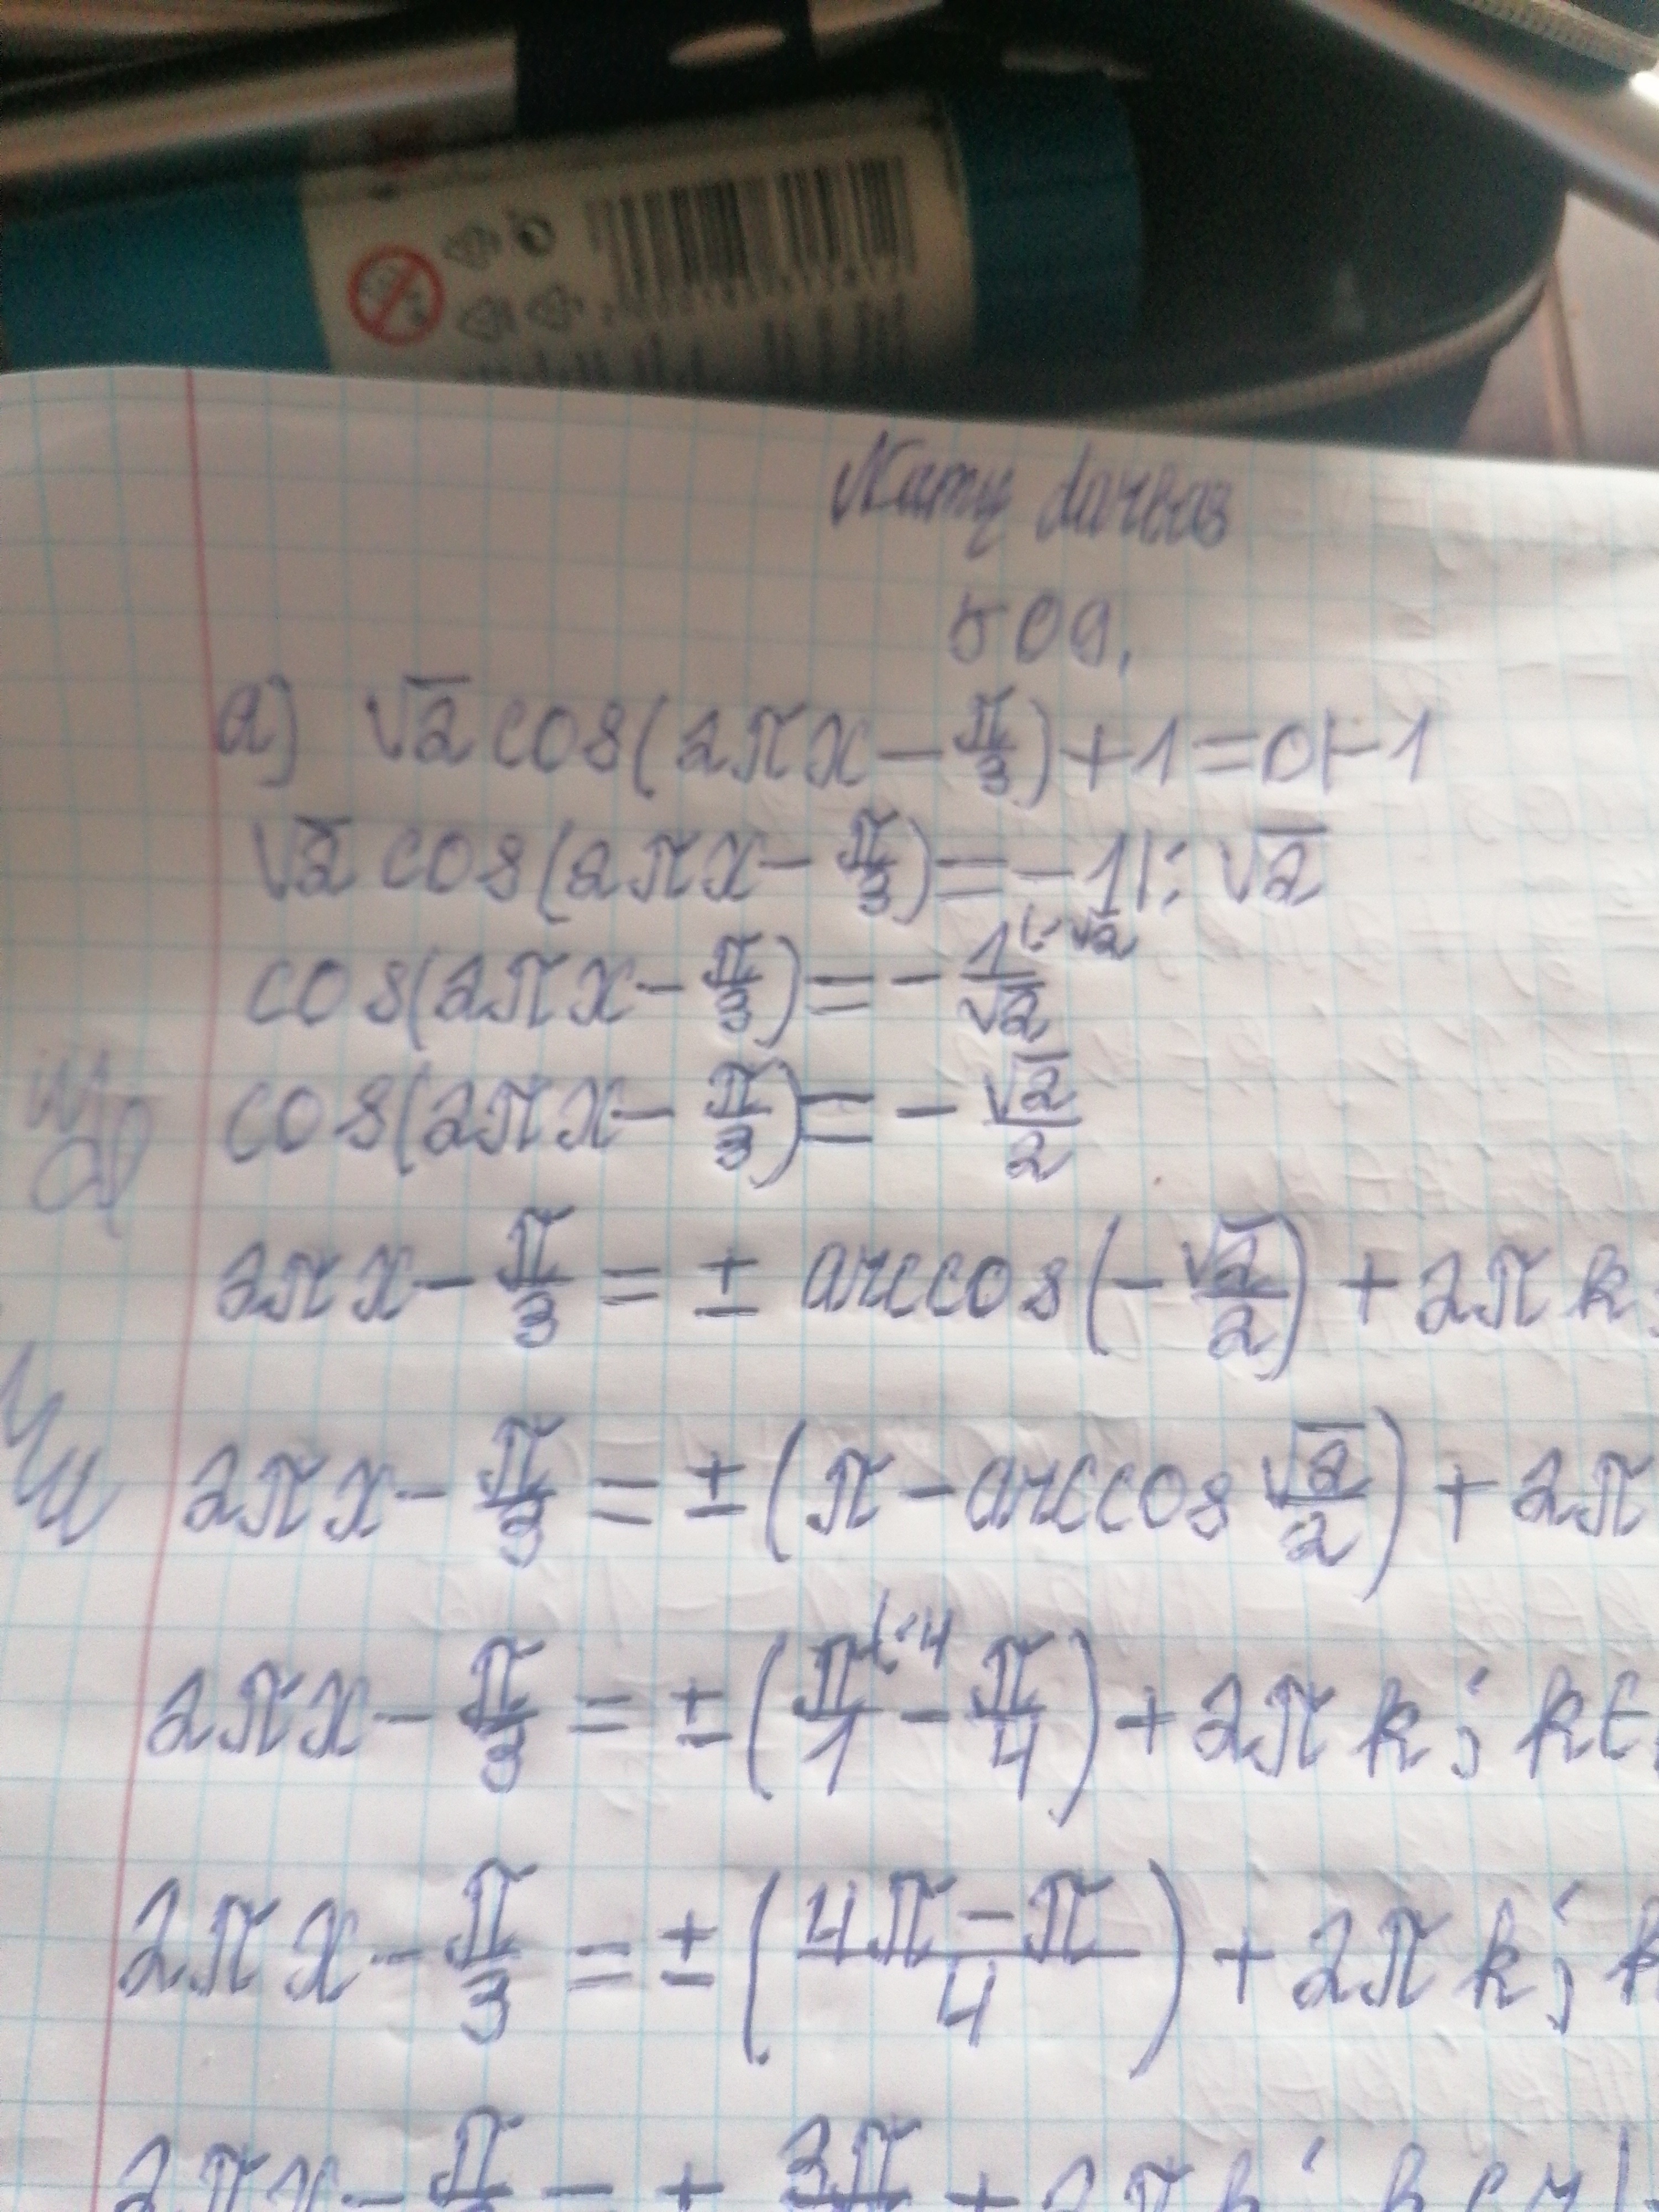 Namų darbas
509.
a) √2 cos(2πx − π/3) + 1 = 0 |−1
√2 cos(2πx − π/3) = −1 |: √2
cos(2πx − π/3) = − 1/√2 |·√2
cos(2πx − π/3) = − √2/2
2πx − π/3 = ± arccos(− √2/2) + 2πk;
2πx − π/3 = ± (π − arccos √2/2) + 2π
2πx − π/3 = ± (π/1 |·4 − π/4) + 2πk; k∈
2πx − π/3 = ± ((4π − π)/4) + 2πk; k